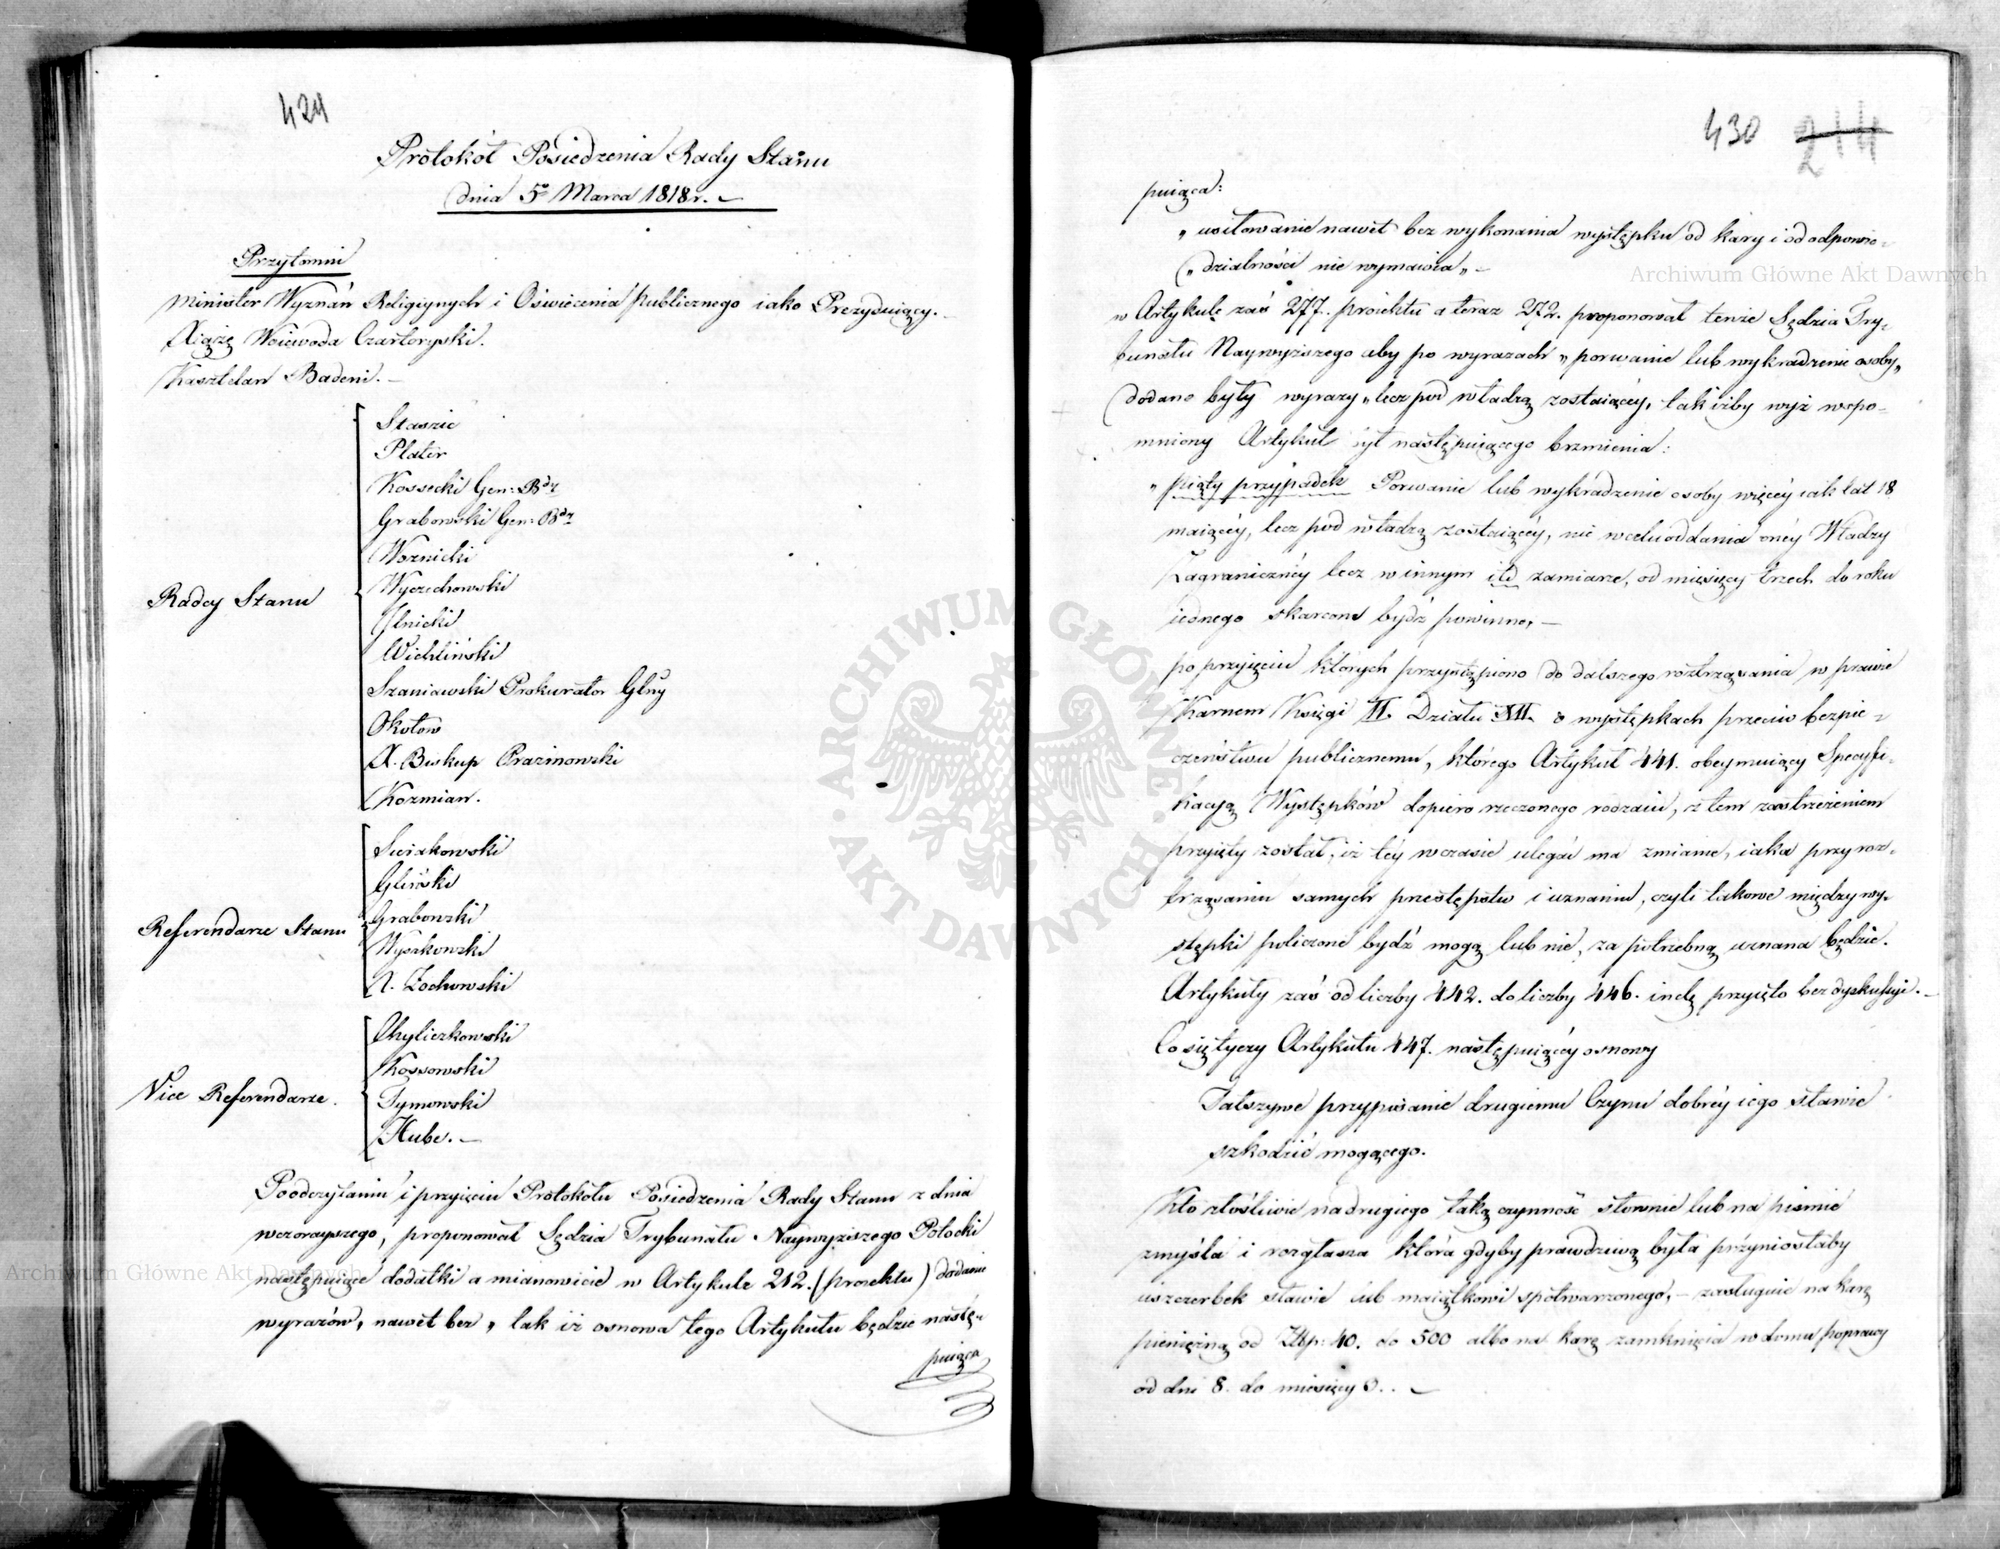 429
Protokół Posiedzenia Rady Stanu
dnia 5º Marca 1818 r. —
Przytomni
Minister Wyznań Religiynych i Oświecenia publicznego iako Prezyduiący. —
Xiążę Woiewoda Czartoryski.
Kasztelan Badeni. —
Radcy Stanu
Staszic
Plater
Kossecki Gen: Bdy
Grabowski Gen: Bdy
Woznicki
Wyczechowski
Jlnicki
Wichliński
Szaniawski Prokurator Głny
Okołow
X. Biskup Prazmowski
Kozmian.
Referendarze Stanu
Suiakowski
Gliński
Grabowski
Wyszkowski
X. Żochowski
Vice Referendarze.
Chyliczkowski
Kossowski
Tymowski
Hube. —
Po odczytaniu i przyięciu Protokołu Posiedzenia Rady Stanu z dnia
wczorayszego, proponował Sędzia Trybunału Naywyższego Potocki
następuiące dodatki a mianowicie w Artykule 212. (proiektu) dodanie
wyrazów „ nawet bez „ tak iż osnowa tego Artykułu będzie nastę-
puiąca
430 214
puiąca:
„ usiłowanie nawet bez wykonania występku od kary i od odpowie-
„ dzialności nie wymawia „ —
w Artykule zaś 277. proiektu a teraz 272. proponował tenże Sędzia Try-
bunału Naywyższego aby po wyrazach „ porwanie lub wykradzenie osoby „
dodane były wyrazy „ lecz pod władzą zostaiącéy „ tak iżby wyż wspo-
mniony Artykuł był następuiącego brzmienia:
„ piąty przypadek Porwanie lub wykradzenie osoby więcéy iak lat 18
maiącéy, lecz pod władzą zostaiącéy, nie w celu oddania onéy Władzy
Zagranicznéy lecz w innym itd zamiarze, od miesięcy trzech do roku
iednego skarcone bydź powinno „ —
po przyięciu których przystąpiono do dalszego roztrząsania w prawie
Karnem Księgi II. Działu XII. o występkach przeciw bezpie-
czeństwu publicznemu, którego Artykuł 441. obeymuiący Specyfi-
kacyą Występków dopiero rzeczonego rodzaiu, z tem zastrzeżeniem
przyięty został, iż téy w czasie ulegać ma zmianie, iaka przy roz-
trząsaniu samych przestępstw i uznaniu, czyli takowe między wy-
stępki policzone bydź mogą lub nie, za potrzebną uznana będzie.
Artykuły zaś od liczby 442. do liczby 446. incl: przyięto bez dyskussyi. —
Co się tyczy Artykułu 447. następuiącéy osnowy
Fałszywe przypisanie drugiemu Czynu dobréy iego sławie
szkodzić mogącego.
Kto złośliwie na drugiego taką czynność słownie lub na piśmie
zmyśla i rozgłasza która gdyby prawdziwą była przyniosłaby
uszczerbek sławie lub maiątkowi spotwarzonego, — zasługuie na karę
pieniężną od Złp: 40. do 500 albo na karę zamknięcia w domu poprawy
od dni 8. do miesięcy 3. . —
Archiwum Główne Akt Dawnych
Archiwum Główne Akt Dawnych
ARCHIWUM GŁÓWNE AKT DAWNYCH